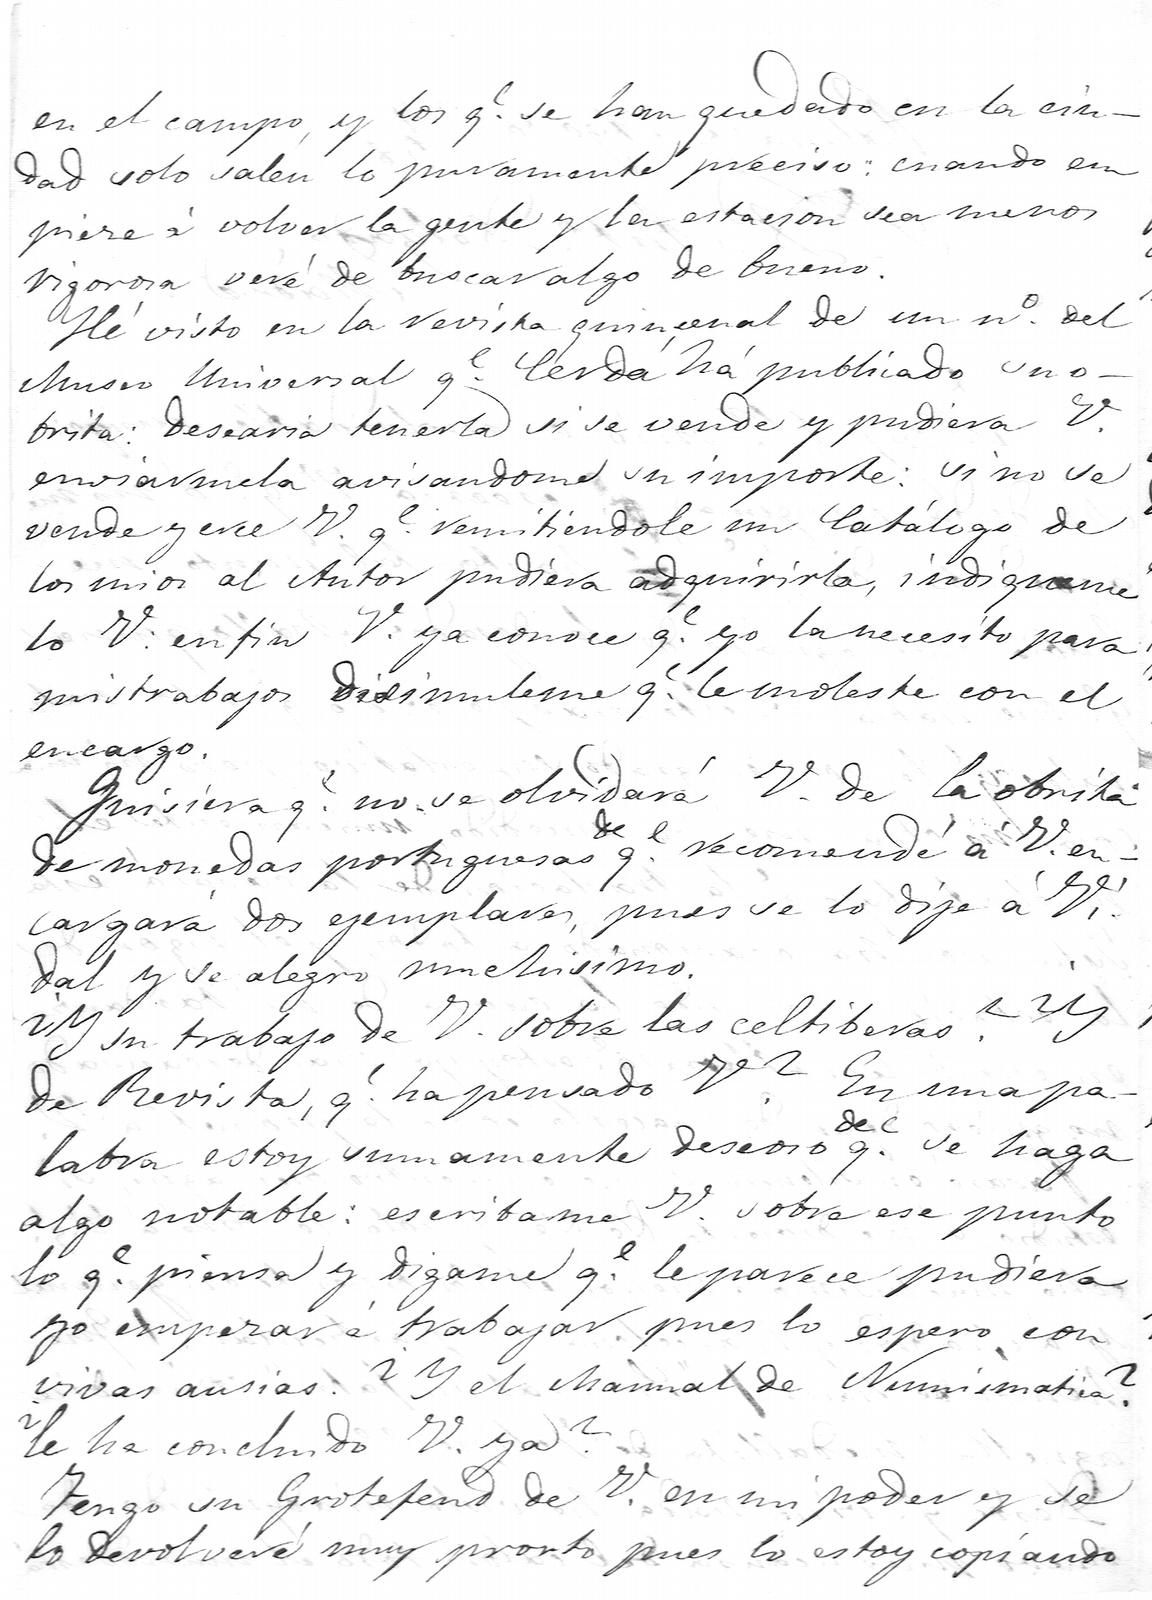 en el campo, y los q.e se han quedado en la ciu-
dad solo salen lo puramente preciso: cuando em
pieze á volver la gente y la estacion sea menos
rigorosa veré de buscar algo de bueno.
Hé visto en la revista quincenal de un nº. del
Museo Universal q.e Cerdá há publicado su o-
brita: desearia tenerla si se vende y pudiera V.
enviarmela avisandome su importe: si no se
vende y cree V. q.e remitiendole un Catálogo de
los mios al Autor pudiera adquirirla, indiqueme
lo V: en fin V. ya conoce q.e yo la necesito para
mis trabajos disimuleme q.e le moleste con el
encargo.
Quisiera q.e no se olvidará V. de la obrita
de monedas portuguesas de q.e recomendé á V. en-
cargará dos ejemplares, pues se lo dije á Vi-
dal y se alegro muchisimo.
¿Y su trabajo de V. sobre las celtiberas? ¿Y
de Revista, q.e ha pensado V? En una pa-
labra estoy sumamente deseoso de q.e se haga
algo notable: escribame V. sobre ese punto
lo q.e piensa y digame q.e le parece pudiera
yo empezar á trabajar, pues lo espero con
vivas ansias. ¿Y el Manual de Numismatica?
¿le ha concluido V. ya?
Tengo su Grotefend de V. en mi poder y se
lo devolveré muy pronto pues lo estoy copiando